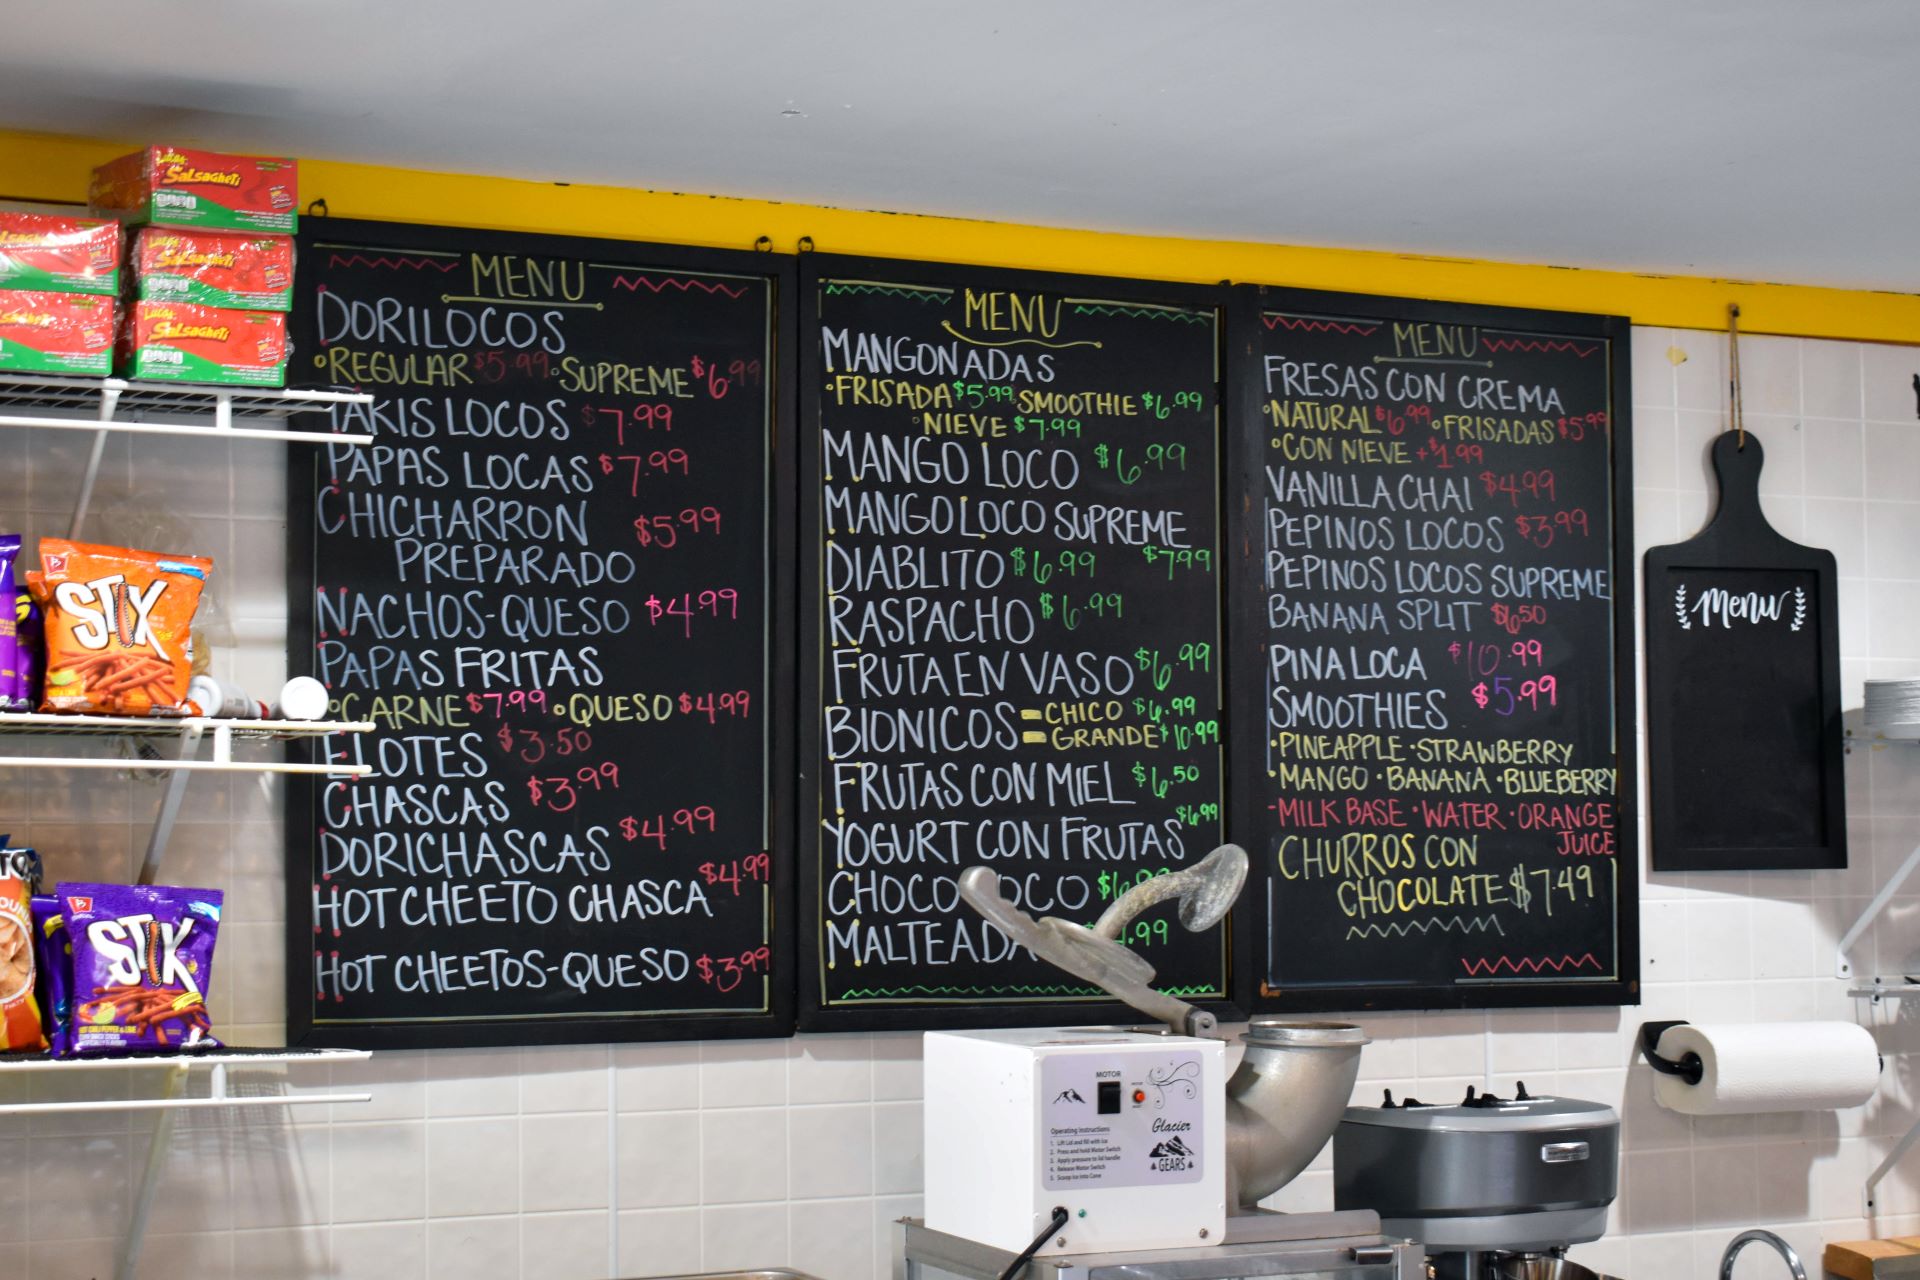 Lucas
Salsagheti
Lucas
Salsagheti
Lucas
Salsagheti
STIX
STIX
MENU
DORILOCOS
°REGULAR $5.99 °SUPREME $6.99
TAKIS LOCOS $7.99
PAPAS LOCAS $7.99
CHICHARRON $5.99
PREPARADO
NACHOS-QUESO $4.99
PAPAS FRITAS
°CARNE $7.99 °QUESO $4.99
ELOTES $3.50
CHASCAS $3.99
DORICHASCAS $4.99
HOT CHEETO CHASCA $4.99
HOT CHEETOS-QUESO $3.99
MENU
MANGONADAS
°FRISADA $5.99 SMOOTHIE $6.99
°NIEVE $7.99
MANGO LOCO $6.99
MANGO LOCO SUPREME $7.99
DIABLITO $6.99
RASPACHO $6.99
FRUTA EN VASO $6.99
BIONICOS =CHICO $6.99
=GRANDE $10.99
FRUTAS CON MIEL $6.50
YOGURT CON FRUTAS $6.99
CHOCO OCO
MALTEADA .99
MENU
FRESAS CON CREMA
°NATURAL $6.99 °FRISADAS $5.99
°CON NIEVE +$1.99
VANILLA CHAI $4.99
PEPINOS LOCOS $3.99
PEPINOS LOCOS SUPREME
BANANA SPLIT $6.50
PINA LOCA $10.99
SMOOTHIES $5.99
•PINEAPPLE •STRAWBERRY
•MANGO •BANANA •BLUEBERRY
-MILK BASE •WATER •ORANGE
JUICE
CHURROS CON
CHOCOLATE $7.49
Menu
MOTOR
Operating Instructions
1. Lift Lid and fill with ice
2. Press and hold Motor Switch
3. Apply pressure to lid handle
4. Release Motor Switch
5. Scoop Ice into Cone
Glacier
GEARS